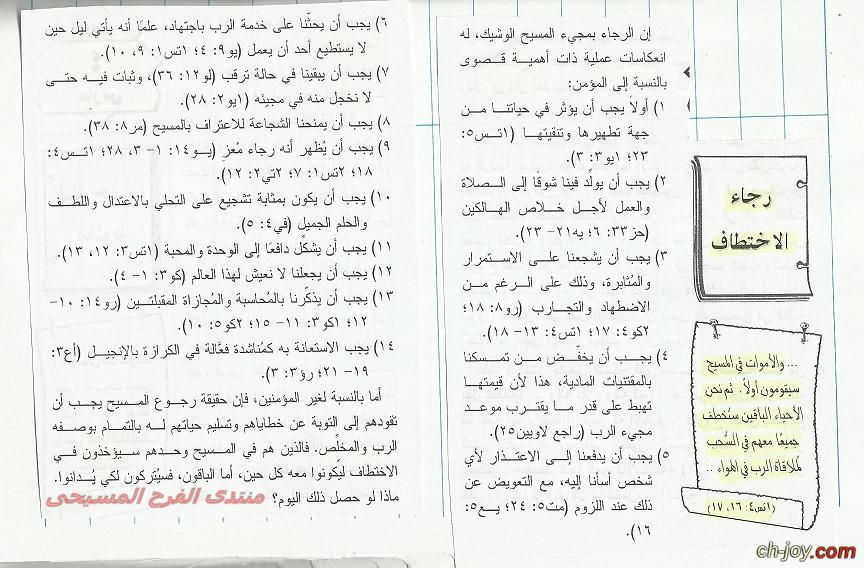 رجاء
الاختطاف
... والأموات في المسيح
سيقومون أولاً. ثم نحن
الأحياء الباقين سنُخطف
جميعًا معهم في السُحب
لمُلاقاة الرب في الهواء ..
(١تس٤: ١٦، ١٧)
إن الرجاء بمجيء المسيح الوشيك، له
انعكاسات عملية ذات أهمية قصوى
بالنسبة إلى المؤمن:
١) أولاً يجب أن يؤثر في حياتنا من
جهة تطهيرها وتنقيتها (١تس٥:
٢٣؛ ١يو٣: ٣).
٢) يجب أن يولِّد فينا شوقًا إلى الصلاة
والعمل لأجل خلاص الهالكين
(حز٣٣: ٦؛ يه٢١- ٢٣).
٣) يجب أن يشجعنا على الاستمرار
والمُثابرة، وذلك على الرغم من
الاضطهاد والتجارب (رو٨: ١٨؛
٢كو٤: ١٧؛ ١تس٤: ١٣- ١٨).
٤) يجب أن يخفِّض من تمسكنا
بالمقتنيات المادية، هذا لأن قيمتها
تهبط على قدر ما يقترب موعد
مجيء الرب (راجع لاويين٢٥).
٥) يجب أن يدفعنا إلى الاعتذار لأي
شخص أسأنا إليه، مع التعويض عن
ذلك عند اللزوم (مت٥: ٢٤؛ يع٥:
١٦).
٦) يجب أن يحثّنا على خدمة الرب باجتهاد، علمًا أنه يأتي ليل حين
لا يستطيع أحد أن يعمل (يو٩: ٤؛ ١تس١: ٩، ١٠).
٧) يجب أن يبقينا في حالة ترقب (لو١٢: ٣٦)، وثبات فيه حتى
لا نخجل منه في مجيئه (١يو٢: ٢٨).
٨) يجب أن يمنحنا الشجاعة للاعتراف بالمسيح (مر٨: ٣٨).
٩) يجب أن يُظهر أنه رجاء مُعزٍ (يو١٤: ١- ٣، ٢٨؛ ١تس٤:
١٨؛ ٢تس١: ٧؛ ٢تي٢: ١٢).
١٠) يجب أن يكون بمثابة تشجيع على التحلي بالاعتدال واللطف
والحلم الجميل (في٤: ٥).
١١) يجب أن يشكِّل دافعًا إلى الوحدة والمحبة (١تس٣: ١٢، ١٣).
١٢) يجب أن يجعلنا لا نعيش لهذا العالم (كو٣: ١- ٤).
١٣) يجب أن يذكِّرنا بالمُحاسبة والمُجازاة المقبلتين (رو١٤: ١٠-
١٢؛ ١كو٣: ١١- ١٥؛ ٢كو٥: ١٠).
١٤) يجب الاستعانة به كمُناشدة فعَّالة في الكرازة بالإنجيل (أع٣:
١٩- ٢١؛ رؤ٣: ٣).
أما بالنسبة لغير المؤمنين، فإن حقيقة رجوع المسيح يجب أن
تقودهم إلى التوبة عن خطاياهم وتسليم حياتهم له بالتمام بوصفه
الرب والمخلِّص. فالذين هم في المسيح وحدهم سيؤخذون في
الاختطاف ليكونوا معه كل حين، أما الباقون، فسيُتركون لكي يُدانوا.
ماذا لو حصل ذلك اليوم؟ منتدى الفرح المسيحى
ch-joy.com